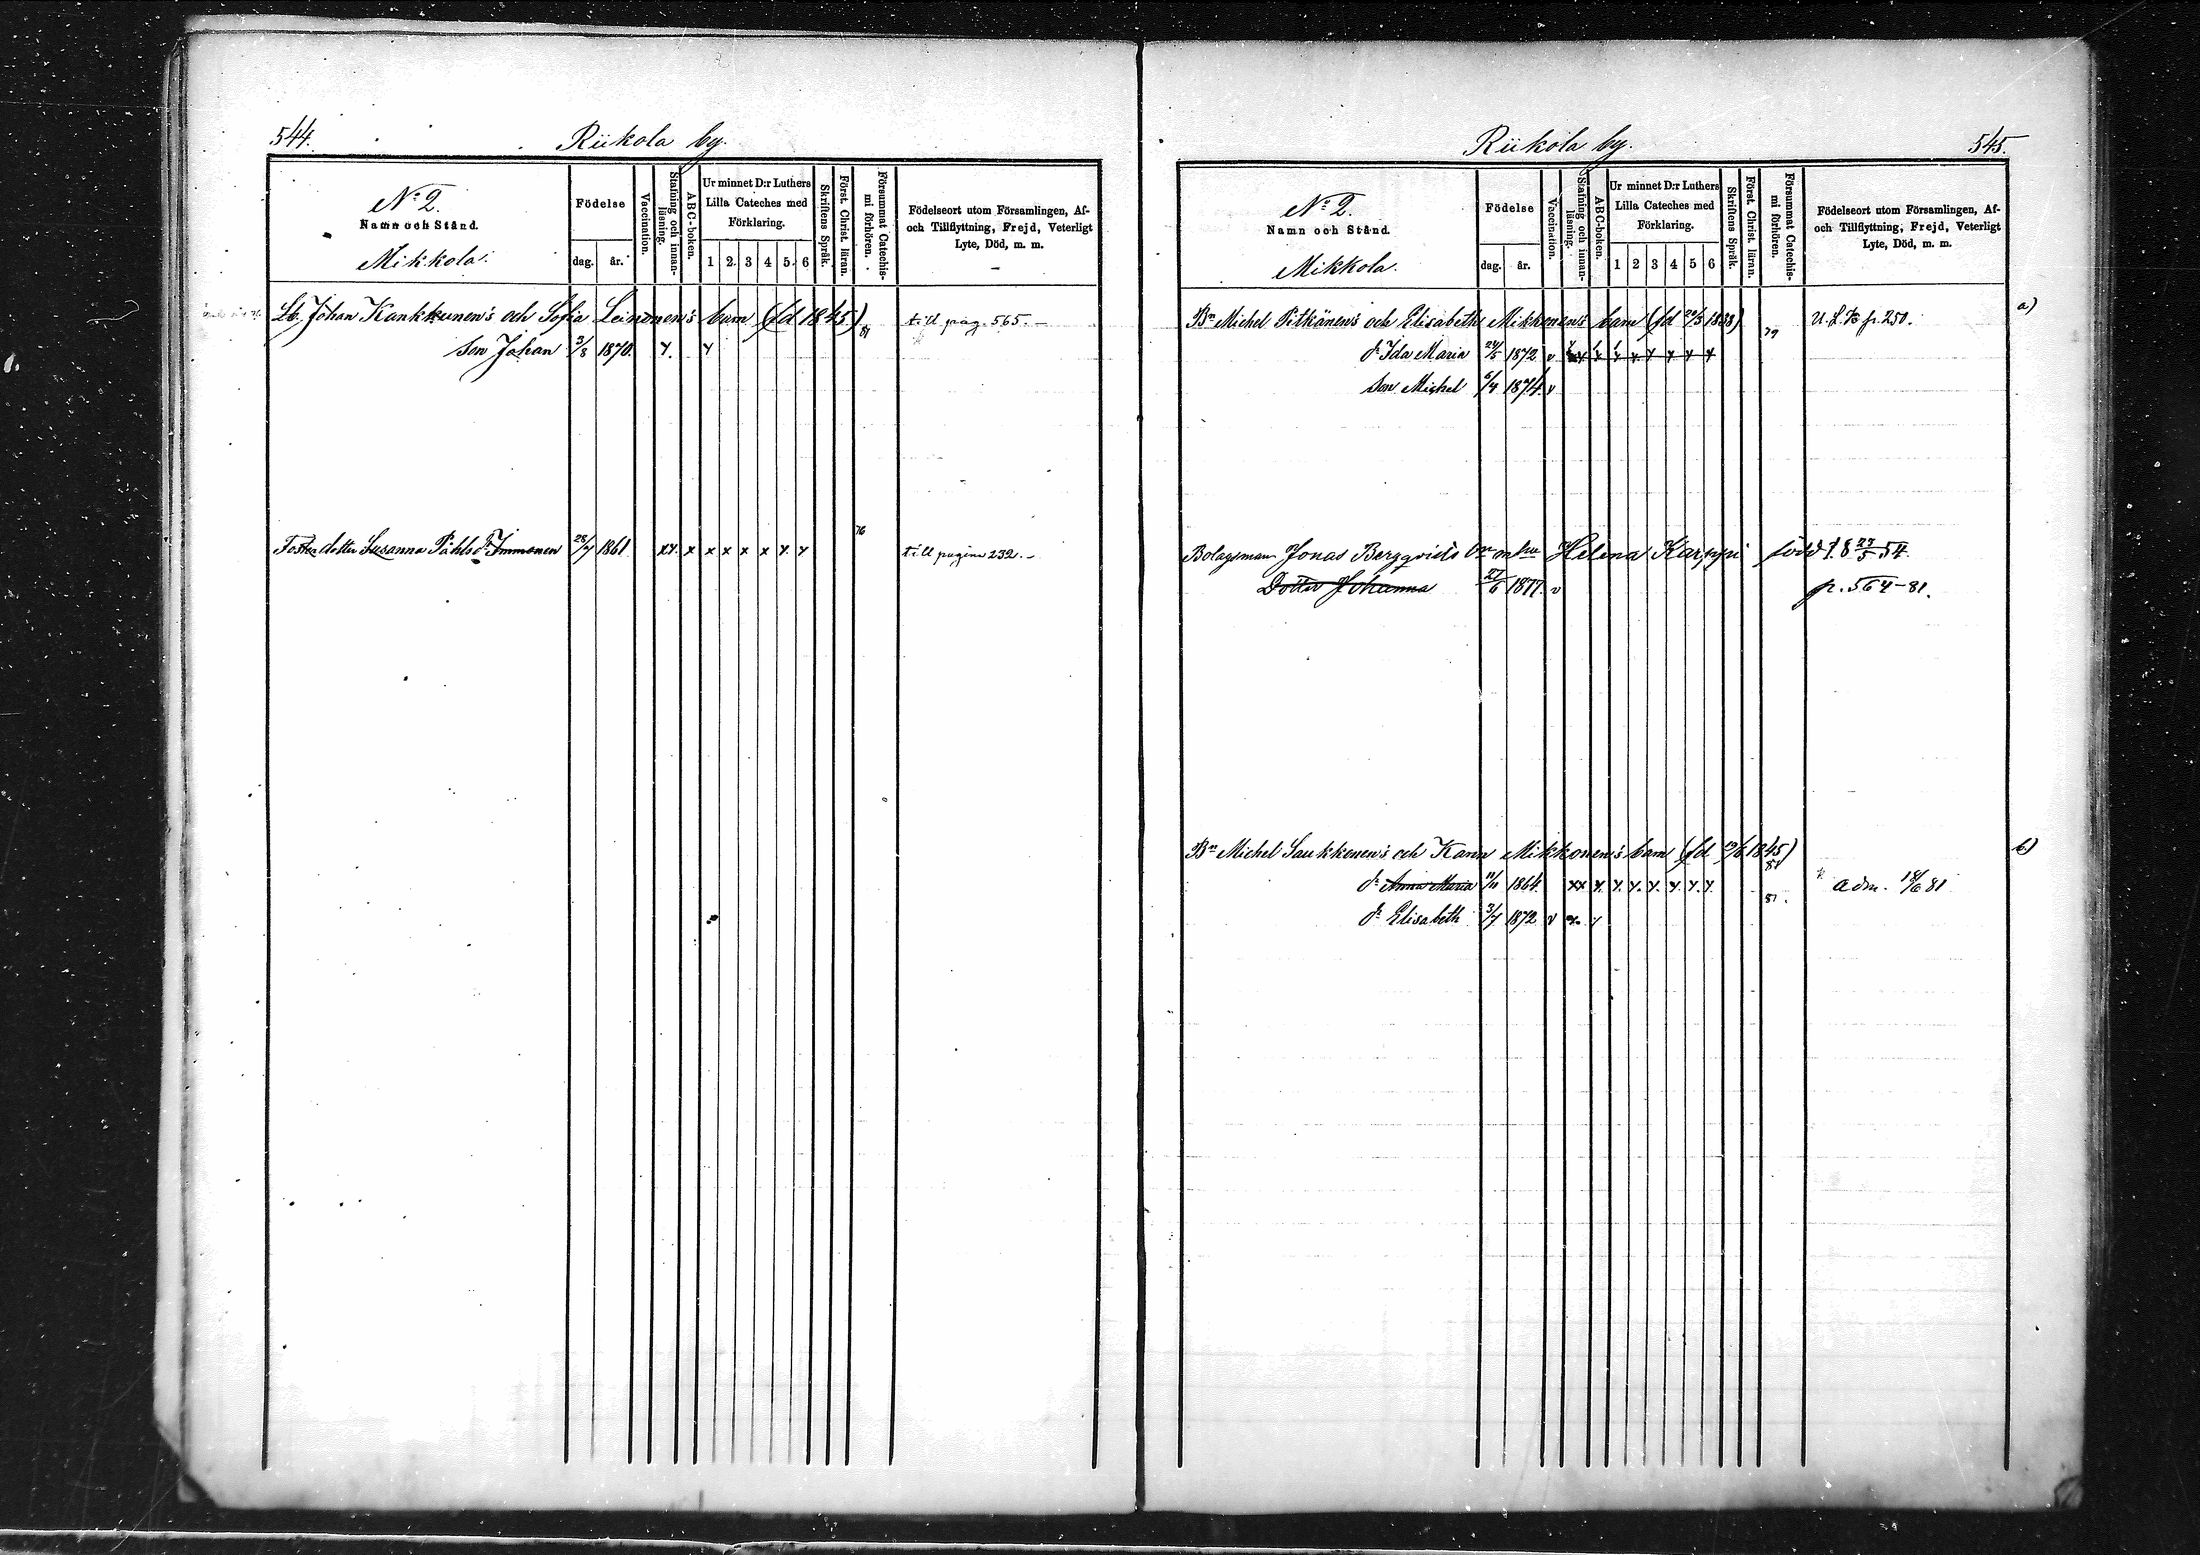 544.
Riikola by.
No 2.
Namn och Stånd.
Mikkola.
Födelse
dag.
år.
Vaccination.
Stafning och innanläsning.
ABC-boken.
Ur minnet D:r Luthers
Lilla Cateches med
Förklaring.
1 2 3 4 5 6
Skriftens Språk.
Först. Christ. läran.
Försummat Catechismi förhören.
Födelseort utom Församlingen, Af-
och Tillflyttning, Frejd, Veterligt
Lyte, Död, m. m.
Lb. Johan Kankkunen's och Sofia Leinonen's barn (fd 1845) 81 till pag. 565.
Son Johan 3/8 1870. y y
Foster dotter Susanna Påhlsdr Immonen 28/7 1861 xy. x x x x x y. y 76 till pagina 232.
Riikola by.
545.
No 2.
Namn och Stånd.
Mikkola.
Födelse
dag.
år.
Vaccination.
Stafning och innanläsning.
ABC-boken.
Ur minnet D:r Luthers
Lilla Cateches med
Förklaring.
1 2 3 4 5 6
Skriftens Språk.
Först. Christ. läran.
Försummat Catechismi förhören.
Födelseort utom Församlingen, Af-
och Tillflyttning, Frejd, Veterligt
Lyte, Död, m. m.
Bn Michel Pitkänen's och Elisabeth Mikkonen's barn (fd 29/3 1838) 79 U. L. B. p. 250. a)
dr Ida Maria 24/5 1872 v
Son Michel 6/4 1874. v
Bolagsman Jonas Bergqvists o m hu Helena Karppi född 18 23/5 54.
Dotter Johanna 27/6 1877. v p. 564-81.
Bn Michel Saukkonen's och Karin Mikkonen's barn (fd 19/6 1845) b)
81
dr Anna Maria 11/11 1864. xx y. y. y. y. y. y. y. adm. 18/6 81
dr Elisabeth 3/7 1872 v x y 81.